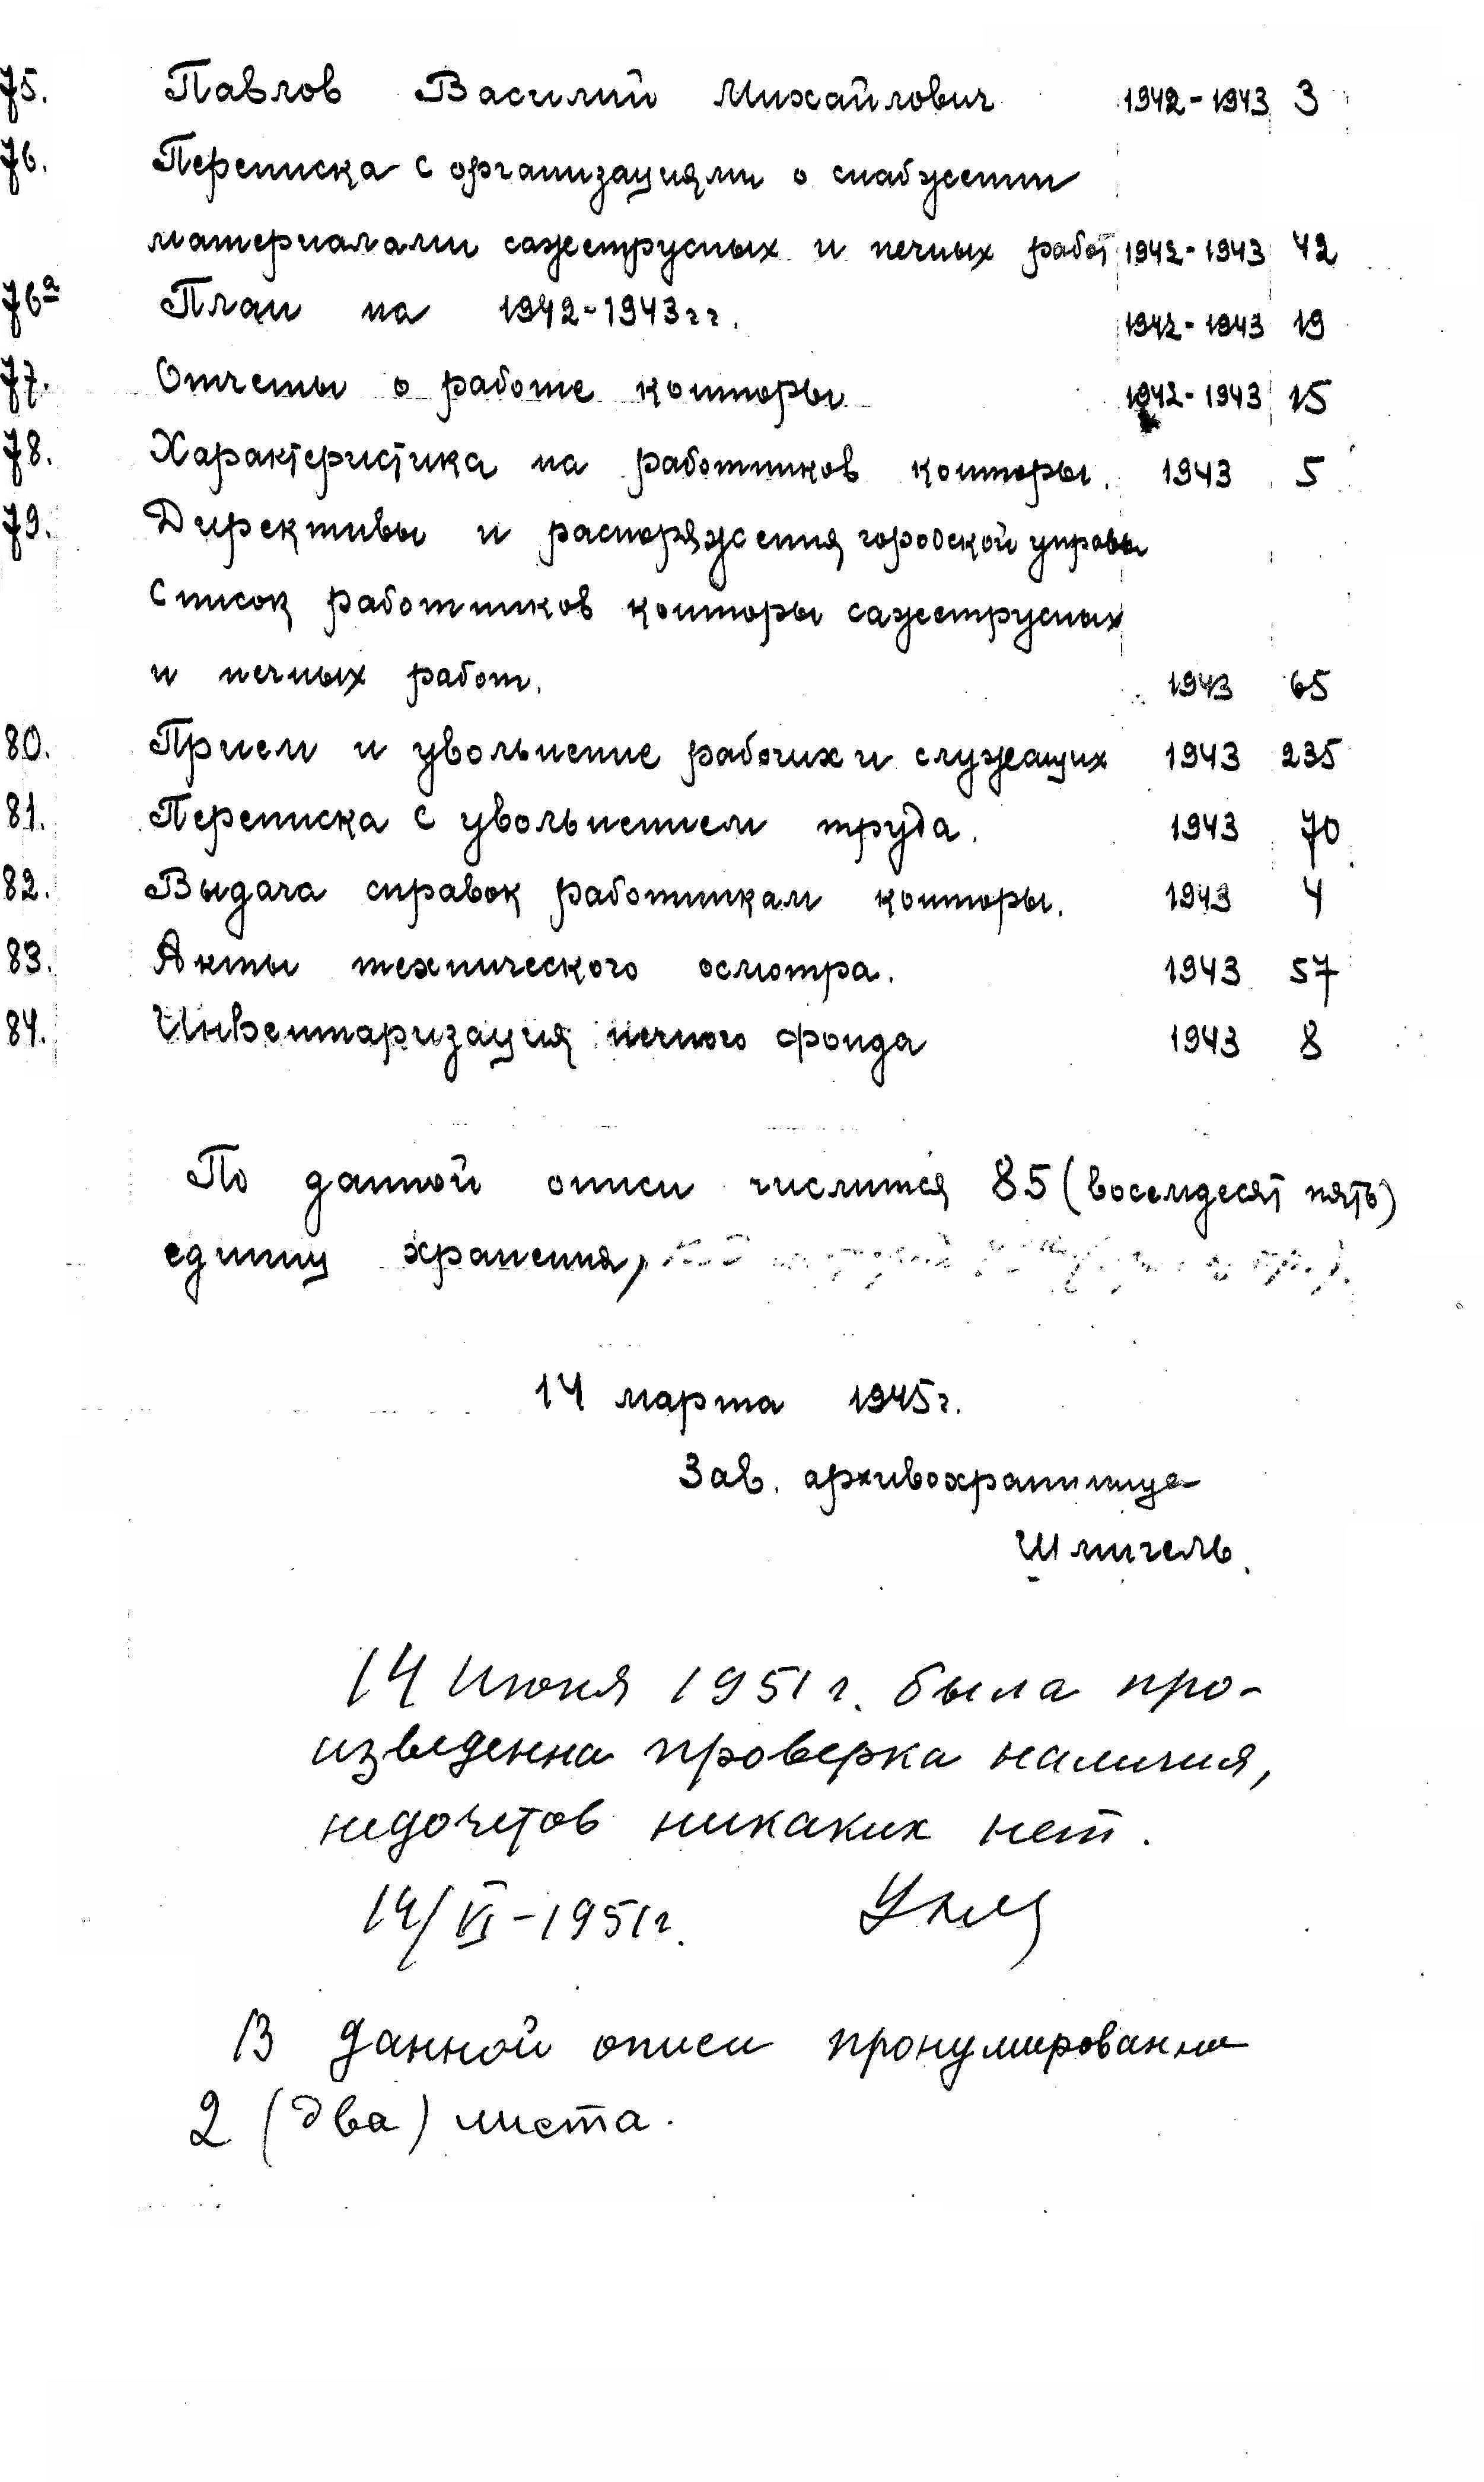 75. Павлов Василий Михайлович 1942-1943 3
76. Переписка с организациями о снабжении
материалами сажетрусных и печных работ 1942-1943 42
76а План на 1942-1943 гг. 1942-1943 19
77. Отчеты о работе конторы 1942-1943 15
78. Характеристика на работников конторы. 1943 5
79. Директивы и распоряжения городской управы
Список работников конторы сажетрусных
и печных работ. 1943 65
80. Прием и увольнение рабочих и служащих 1943 235
81. Переписка с увольнением труда. 1943 70
82. Выдача справок работникам конторы. 1943 4
83. Акты технического осмотра. 1943 57
84. Инвентаризация печного фонда 1943 8
По данной описи числится 85 (восемдесят пять)
единиц хранения,
14 марта 1945 г.
Зав. архивохранилища
Шмигель.
14 июня 1951 г. была про-
изведенна проверка наличия,
недочетов никаких нет.
14/VI-1951 г.
В данной описи пронумерованно
2 (два) листа.